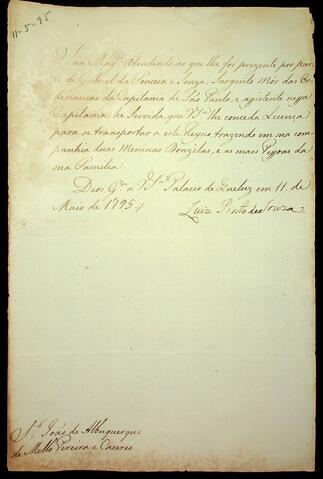 11-5-95
Sua Mag.e attendendo ao que lhe foi prezente por par-
de Gabriel da Fonceca e Souza, Sargento Mór das Or-
denanças da Capitania de São Paulo, e agistente nessa
Capitania he Servida, que V.S.a lhe conceda Licença
para se transportar a este Reyno trazendo em sua com
panhia duas Meninas Donzelas, e as mais Pessoas da
sua Familia.
Deos G.de a V.S.a Palacio de Queluz em 11 de
Maio de 1795
Luiz Pinto de Souza
S.r João de Albuquerque
de Mello Pereira e Caceres